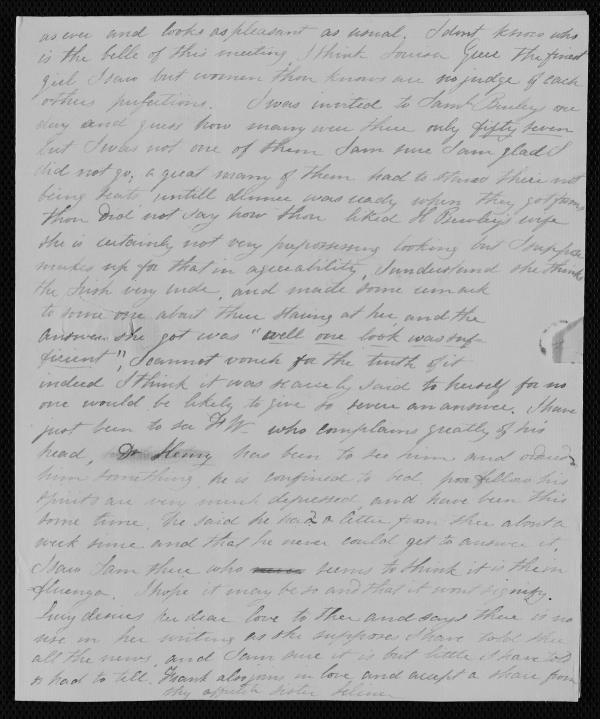 as ever and looks as pleasant as usual. I dont know who
is the belle of this meeting I think Louisa the finest
girl I saw but women thou knows are no judge of each
others perfections. I was invited to Saml Bewleys one
day and guess how many were there only fifty seven
but I was not one of them I am sure I am glad I
did not go, a great many of them had to stand there not
being seats untill dinner was ready when they got
thou did not say how thou liked H Bewley's wife
she is certainly not very prepossessing looking but I suppose
makes up for that in agreeability, I understand she thinks
the Irish very rude, and made some remark
to some one about their staring at her and the
answer she got was "well one look was suf-
ficient", I cannot vouch for the truth of it
indeed I think it was scarcely said to herself for no
one would be likely to give so severe an answer. I have
just been to see FW who complains greatly of his
head, Dr Henry has been to see him and ordered
him something, he is confined to bed, poor fellow his
spirits are very much depressed and have been this
some time, he said he had a letter from thee about a
week since and that he never could get to answer it,
I saw Sam there who seems to think it is the in
fluenza. I hope it may be so and that it wont signify.
Lucy desires her dear love to thee and says there is no
use in her writing as she supposes I have told thee
all the news, and I am sure it is but little I have told
or had to tell. Frank also joins in love and accept a share from
thy affecte sister Selina